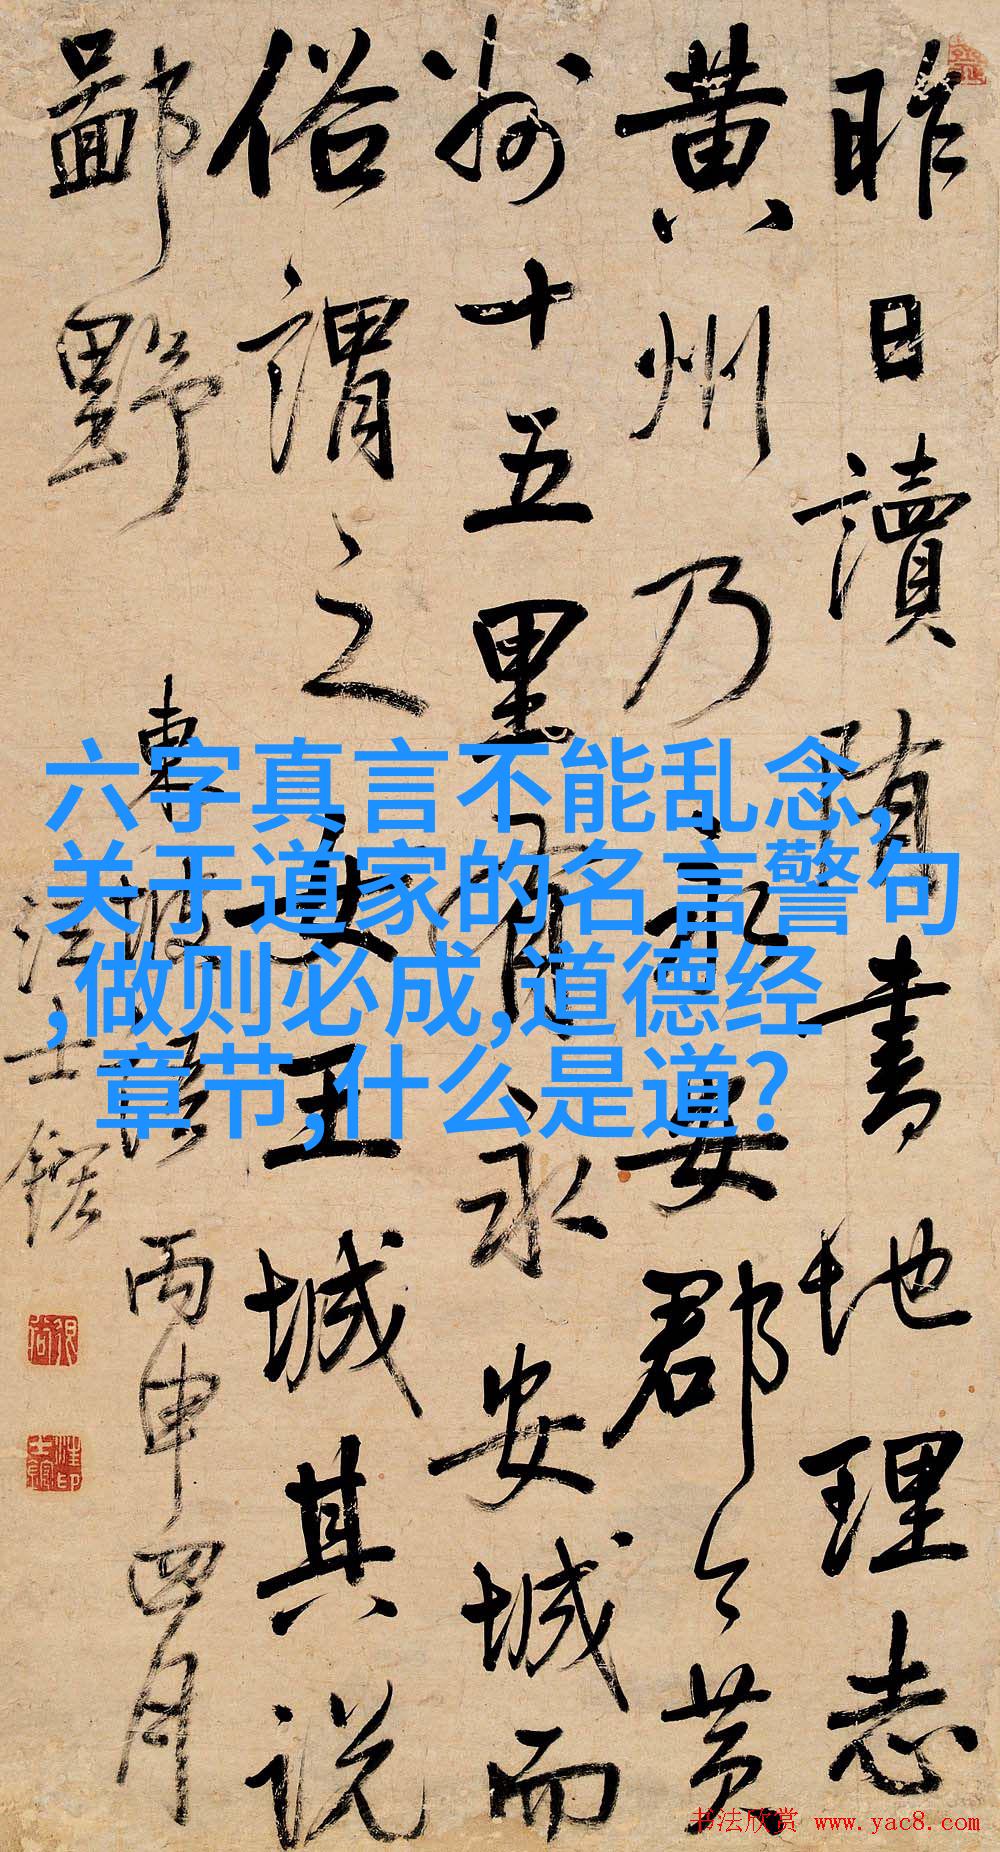 昨日讀隋書地理志
黃州乃永安郡今黃
州十五里有永安城而
俗謂之女王城其説
鄙野
東坡語 丙申四月
汪士鋐
六字真言不能乱念,
关于道家的名言警句
,做则必成,道德经
章节,什么是道?
书法欣赏 www.yac8.com